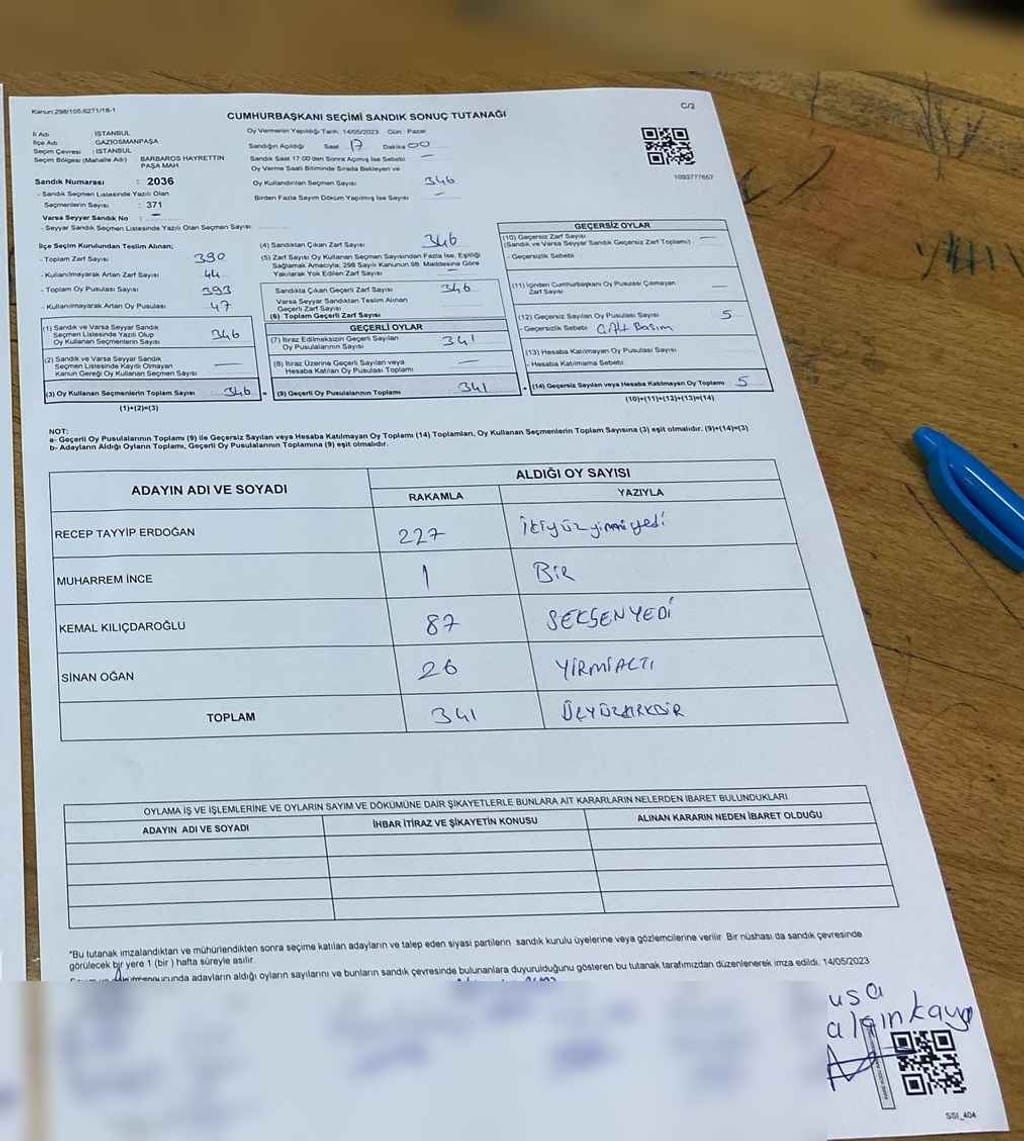 Kanun:298/105,6271/18-1
CUMHURBAŞKANI SEÇİMİ SANDIK SONUÇ TUTANAĞI
C/2
İl Adı : İSTANBUL
İlçe Adı : GAZİOSMANPAŞA
Seçim Çevresi : İSTANBUL
Seçim Bölgesi (Mahalle Adı) BARBAROS HAYRETTİN
PAŞA MAH
Sandık Numarası : 2036
- Sandık Seçmen Listesinde Yazılı Olan
Seçmenlerin Sayısı : 371
Varsa Seyyar Sandık No : —
- Seyyar Sandık Seçmen Listesinde Yazılı Olan Seçmen Sayısı
Oy Vermenin Yapıldığı Tarih: 14/05/2023 Gün: Pazar
Sandığın Açıldığı Saat 17 Dakika 00
Sandık Saat 17:00'den Sonra Açılmış İse Sebebi —
Oy Verme Saati Bitiminde Sırada Bekleyen ve
Oy Kullandırılan Seçmen Sayısı 346
Birden Fazla Sayım Döküm Yapılmış İse Sayısı —
1093777657
İlçe Seçim Kurulundan Teslim Alınan;
- Toplam Zarf Sayısı 390
- Kullanılmayarak Artan Zarf Sayısı 44
- Toplam Oy Pusulası Sayısı 393
- Kullanılmayarak Artan Oy Pusulası 47
(1) Sandık ve Varsa Seyyar Sandık
Seçmen Listesinde Yazılı Olup
Oy Kullanan Seçmenlerin Sayısı 346
(2) Sandık ve Varsa Seyyar Sandık
Seçmen Listesinde Kaydı Olmayan
Kanun Gereği Oy Kullanan Seçmen Sayısı —
(3) Oy Kullanan Seçmenlerin Toplam Sayısı 346
(1)+(2)=(3)
(4) Sandıktan Çıkan Zarf Sayısı 346
(5) Zarf Sayısı Oy Kullanan Seçmen Sayısından Fazla İse, Eşitliği
Sağlamak Amacıyla, 298 Sayılı Kanunun 98. Maddesine Göre
Yakılarak Yok Edilen Zarf Sayısı —
Sandıkta Çıkan Geçerli Zarf Sayısı 346
Varsa Seyyar Sandıktan Teslim Alınan
Geçerli Zarf Sayısı
(6) Toplam Geçerli Zarf Sayısı
GEÇERLİ OYLAR
(7) İtiraz Edilmeksizin Geçerli Sayılan
Oy Pusulalarının Sayısı 341
(8) İtiraz Üzerine Geçerli Sayılan veya
Hesaba Katılan Oy Pusulası Toplamı —
(9) Geçerli Oy Pusulalarının Toplamı 341
GEÇERSİZ OYLAR
(10) Geçersiz Zarf Sayısı —
(Sandık ve Varsa Seyyar Sandık Geçersiz Zarf Toplamı)
- Geçersizlik Sebebi
(11) İçinden Cumhurbaşkanı Oy Pusulası Çıkmayan
Zarf Sayısı —
(12) Geçersiz Sayılan Oy Pusulası Sayısı 5
- Geçersizlik Sebebi Çift Basım
(13) Hesaba Katılmayan Oy Pusulası Sayısı
- Hesaba Katılmama Sebebi
(14) Geçersiz Sayılan veya Hesaba Katılmayan Oy Toplamı 5
(10)+(11)+(12)+(13)=(14)
NOT:
a- Geçerli Oy Pusulalarının Toplamı (9) ile Geçersiz Sayılan veya Hesaba Katılmayan Oy Toplamı (14) Toplamları, Oy Kullanan Seçmenlerin Toplam Sayısına (3) eşit olmalıdır. (9)+(14)=(3)
b- Adayların Aldığı Oyların Toplamı, Geçerli Oy Pusulalarının Toplamına (9) eşit olmalıdır.
ADAYIN ADI VE SOYADI ALDIĞI OY SAYISI
RAKAMLA YAZIYLA
RECEP TAYYİP ERDOĞAN 227 İkiyüzyirmiyedi
MUHARREM İNCE 1 BİR
KEMAL KILIÇDAROĞLU 87 SEKSENYEDİ
SİNAN OĞAN 26 YİRMİALTI
TOPLAM 341 ÜÇYÜZKIRKBİR
OYLAMA İŞ VE İŞLEMLERİNE VE OYLARIN SAYIM VE DÖKÜMÜNE DAİR ŞİKAYETLERLE BUNLARA AİT KARARLARIN NELERDEN İBARET BULUNDUKLARI
ADAYIN ADI VE SOYADI İHBAR İTİRAZ VE ŞİKAYETİN KONUSU ALINAN KARARIN NEDEN İBARET OLDUĞU
*Bu tutanak imzalandıktan ve mühürlendikten sonra seçime katılan adayların ve talep eden siyasi partilerin sandık kurulu üyelerine veya gözlemcilerine verilir. Bir nüshası da sandık çevresinde
görülecek bir yere 1 (bir) hafta süreyle asılır.
adayların aldığı oyların sayılarını ve bunların sandık çevresinde bulunanlara duyurulduğunu gösteren bu tutanak tarafımızdan düzenlenerek imza edildi. 14/05/2023
usa
algınkaya
SSİ_404